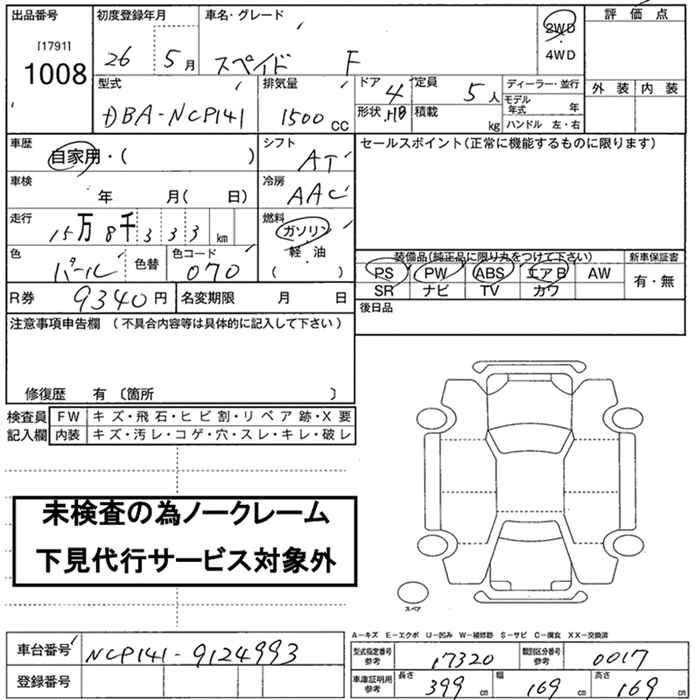 出品番号 初度登録年月 車名・グレード 2WD 評価点
[1791] 26 5月 スペイド F 4WD
1008 型式 排気量 ドア 4 定員 5人 ディーラー・並行 外装 内装
DBA-NCP141 1500cc 形状 HB 積載 kg モデル年式 年
ハンドル 左・右
車歴 自家用・( ) シフト AT セールスポイント(正常に機能するものに限ります)
車検 年 月( 日) 冷房 AAC
走行 15万8千333km 燃料 ガソリン
軽油
( )
色 パール 色替 色コード 070
装備品(純正品に限り丸をつけて下さい) 新車保証書
PS PW ABS エアB AW 有・無
SR ナビ TV カワ
R券 9340円 名変期限 月 日 後日品
注意事項申告欄 (不具合内容等は具体的に記入して下さい)
修復歴 有 〔箇所 〕
検査員 FW キズ・飛石・ヒビ割・リペア跡・X要
記入欄 内装 キズ・汚レ・コゲ・穴・スレ・キレ・破レ
未検査の為ノークレーム
下見代行サービス対象外
スペア
A-キズ E-エクボ U-凹み W-補修跡 S-サビ C-腐食 XX-交換済
車台番号 NCP141-9124993
登録番号
型式指定番号 参考 17320 類別区分番号 参考 0017
車庫証明用 参考 長さ 399cm 幅 169cm 高さ 169cm